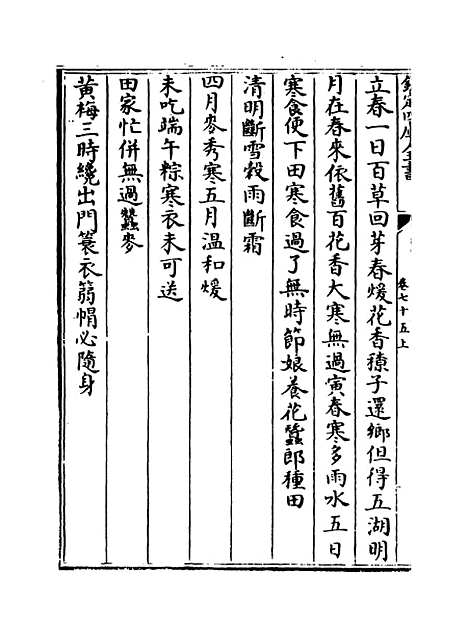 欽定四庫全書
卷七十五上
立春一日百草回芽春煖花香獠子還鄉但得五湖明
月在春來依舊百花香大寒無過寅春寒多雨水五日
寒食便下田寒食過了無時節娘養花蠶郎種田
清明斷雪穀雨斷霜
四月麥秀寒五月溫和煖
未吃端午粽寒衣未可送
田家忙併無過蠶麥
黄梅三時纔出門蓑衣篛帽必隨身